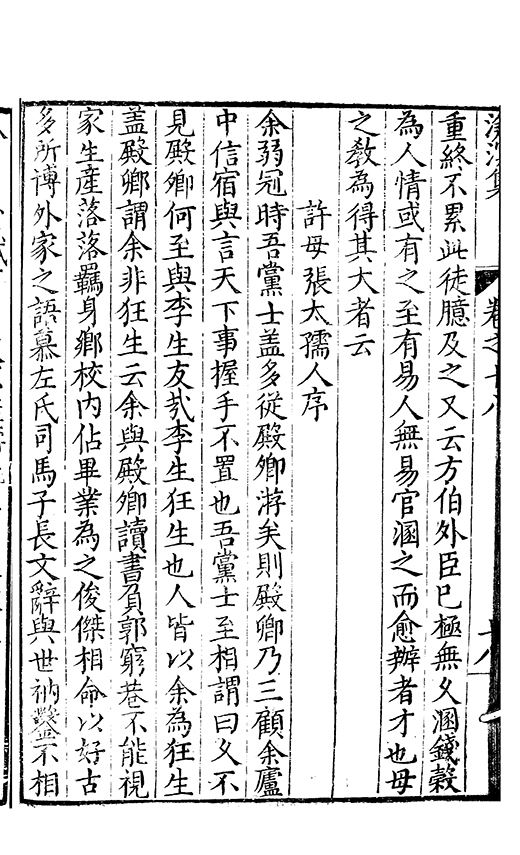 重終不累此徒臆及之又云方伯外臣已極無乆溷錢穀
為人情或有之至有易人無易官溷之而愈辦者才也母
之教為得其大者云
許母張太孺人序
余弱冠時吾黨士盖多從殿卿游矣則殿卿乃三顧余廬
中信宿與言天下事握手不置也吾黨士至相謂曰乆不
見殿卿何至與李生友㢤李生狂生也人皆以余為狂生
盖殿卿謂余非狂生云余與殿卿讀書負郭窮巷不能視
家生產落落羈身鄉校內佔畢業為之俊傑相命以好古
多所愽外家之語慕左氏司馬子長文辭與世枘鑿不相
卷之十八
十八